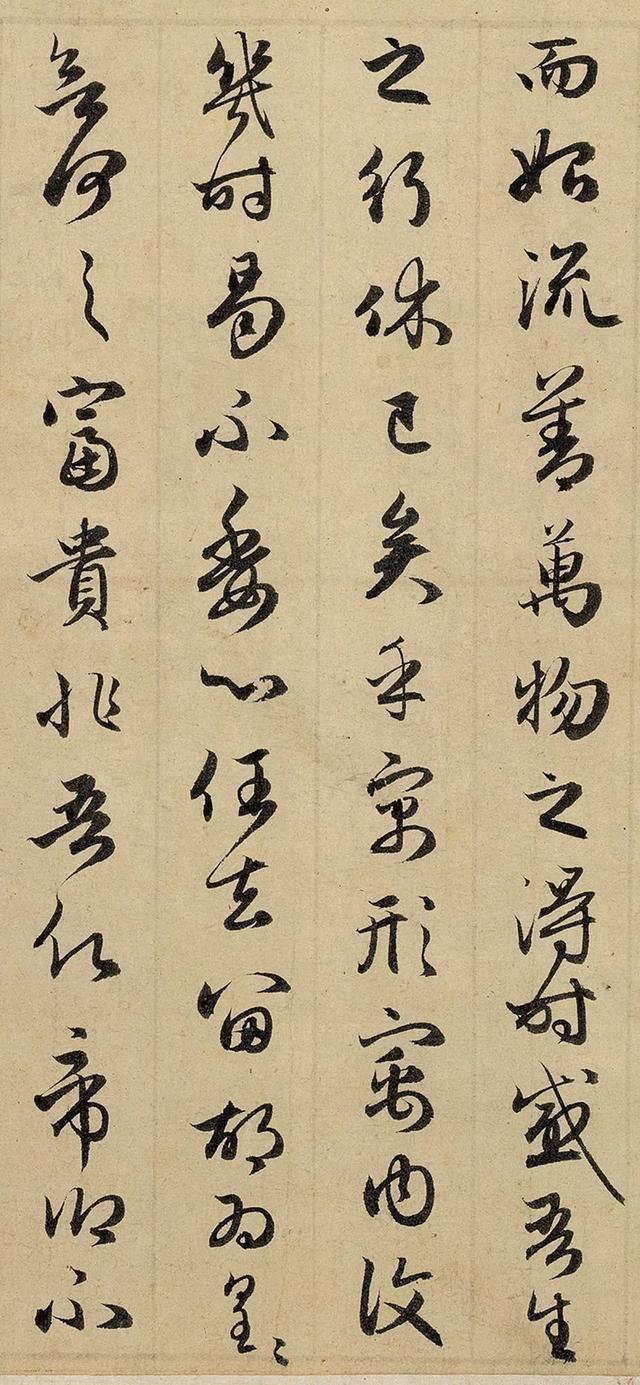 而始流善萬物之得時感吾生
之行休已矣乎寓形寓内復
幾時曷不委心任去留胡為皇〻
何之富貴非吾願帝鄉不